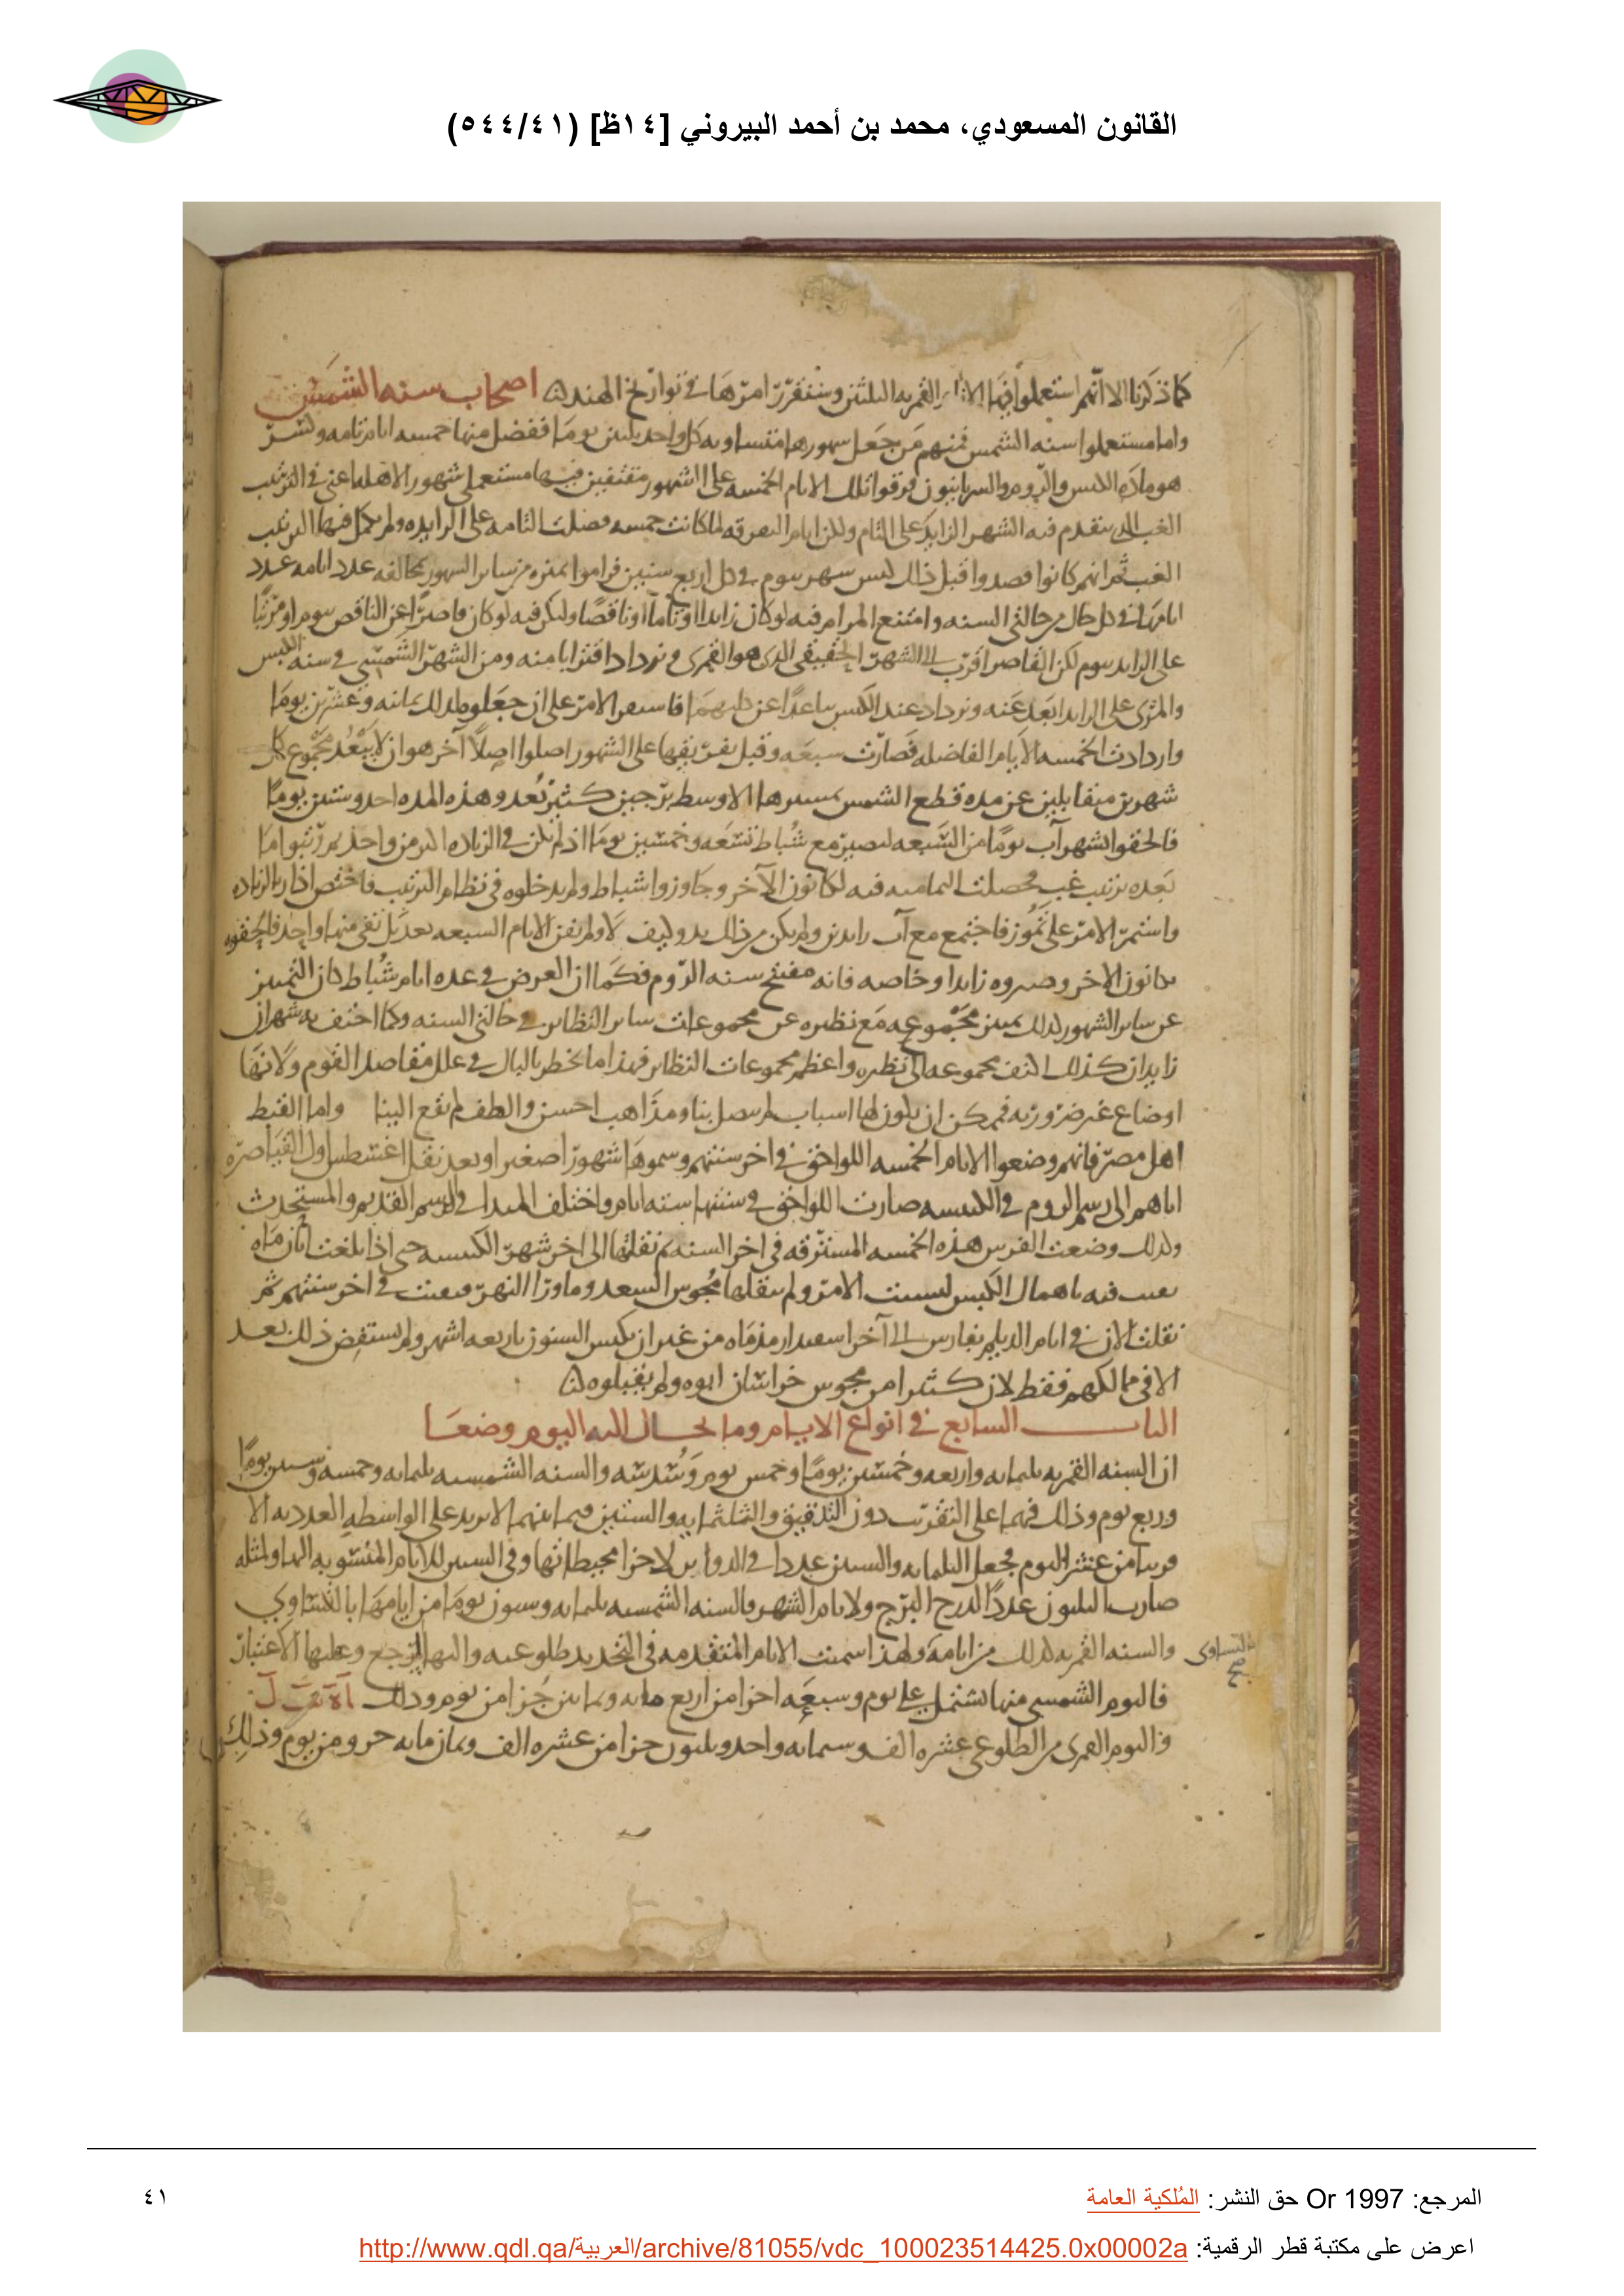 القانون المسعودي، محمد بن أحمد البيروني [١٤ظ] (٥٤٤/٤١)
كما ذكرنا الا انهم استعملوا فيها القمريه الثلثين وسنقرر امرها في تواريخ الهند اصحاب سنه الشمس
واما مستعملوا سنه الشمس فمنهم من جعل شهورها متساويه كل واحد ثلثين يوما ففضل منها خمسه ايام تامه وكسر
والروم والسريانيون فرقوا تلك الايام الخمسه على الشهور مقتفين فيها مستعملي شهور الاهله اعني في الترتيب
الغب الذي يتقدم فيه الشهر الزايد على التام ولكن ايام التفرقه لما كانت خمسه فضلت التامه على الزايده ولم يكمل فيها الترتيب
الغب ثم انهم كانوا قصدوا قبل ذلك كبس شهر بيوم في كل اربع سنين فراموا تميزه من ساير الشهور بمخالفه عدد ايامه عدد
ايامها في كل حال من حالتي السنه وامتنع المرام فيه لو كان زايدا او تاما او ناقصا ولكن فيه لو كان قاصرا عن الناقص بيوم او مربيا
على الزايد بيوم لكن القاصر اقرب الى الشهر الحقيقي الذي هو القمري ويزداد اقترابا منه ومن الشهر الشمسي في سنه الكبس
والمربي على الزايد ابعد عنه ويزداد عند الكبس تباعدا عن كليهما فاستقر الامر على ان جعلوه لذلك ثمانيه وعشرين يوما
وازدادت الخمسه الايام الفاضله فصارت سبعه وقبل تفريقها على الشهور اصلوا اصلا آخر هو ان لا يبعد مجموع كل
شهرين متقابلين عن مده قطع الشمس بمسيرها الاوسط برجين كثير بعد وهذه المده احد وستين يوما
فالحقوا بشهر آب يوما من السبعه ليصير مع شباط تسعه وخمسين يوما اذ لم يكن في الزياده اكثر من واحد ثم رتبوا ما
بعده ترتيب غب فحصلت التماميه فيه لكانون الآخر وجاوزوا شباط ولم يدخلوه في نظام الترتيب فاختص اذار بالزياده
واستمر الامر على تموز فاجتمع مع آب زايدين ولم يكن من ذلك بد وكيف لا ولم تفن الايام السبعه بعد بل بقي منها واحد فالحقوه
بكانون الاخر وصيروه زايدا وخاصه فانه مفتتح سنه الروم فكما ان الغرض في عده ايام شباط كان التمييز
عن ساير الشهور لذلك تميز مجموعه مع نظيره عن مجموعات ساير النظاير في حالتي السنه وكما اختف به شهران
زايدان كذلك اكتنف مجموعه الى نظيره واعظم مجموعات النظاير فهذا ما يخطر بالبال في علل مقاصد القوم ولانها
اوضاع غير ضروريه فممكن ان يكون لها اسباب لم يتصل بنا ومذاهب احسن والطف لم تقع الينا واما القبط
اهل مصر فانهم وضعوا الايام الخمسه اللواحق في اخر سنتهم وسموها شهورا صغيرا وبعد نقل اغشطس اول القياصره
اياهم الى رسم الروم في الكبيسه صارت اللواحق في سنتها سته ايام واختلف المبدا في الرسم القديم والمستحدث
وكذلك وضعت الفرس هذه الخمسه المسترقه في اخر السنه ثم نقلتها الى اخر شهر الكبيسه حتى اذا بلغت ابان ماه
بقيت فيه باهمال الكبس لتشتت الامر ولم ينقلها مجوس السغد وما ورا النهر فبقيت في اخر سنتهم ثم
نقلت الان في ايام الديلم بفارس الى آخر اسفندارمذ ماه من غير ان تكبس السنون باربعه اشهر ولم يستفض ذلك بعد
الا في ممالكهم فقط لان كثيرا من مجوس خراسان ابوه ولم يقبلوه
الباب السابع في انواع الايام وما الحال اليه اليوم وضعا
ان السنه القمريه ثلثمايه واربعه وخمسين يوما وخمس يوم وسدسه والسنه الشمسيه ثلثمايه وخمسه وستين يوما
وربع يوم وذلك فيهما على التقريب دون التدقيق والثلثمايه والستين فيما بينهما لا يزيد على الواسطه العدديه الا
قريبا من عشر اليوم فجعل الثلثمايه والستين عددا في الدواير لاجزا محيطاتها وفي السنين للايام المنسوبه اليها ولمثله
صارت الثلثون عددا لدرج البرج ولايام الشهر فالسنه الشمسيه ثلثمايه وستون يوما من ايامها بالتساوي
والسنه القمريه كذلك من ايامه ولهذا سميت الايام المتقدمه في التحديد طلوعيه واليها الرجع وعليها الاعتبار
بالتساوي صح
فاليوم الشمسي منها يشتمل على يوم وسبعه اجزا من اربع مايه وثمانين جزا من يوم وذلك
واليوم القمري من الطلوعي عشره الف وستمايه واحد وثلثون جزا من عشره الف وثمان مايه جزو من يوم وذلك
المرجع: Or 1997 حق النشر: المُلكية العامة
٤١
اعرض على مكتبة قطر الرقمية: http://www.qdl.qa/العربية/archive/81055/vdc_100023514425.0x00002a